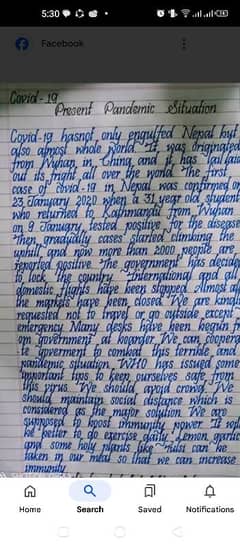 5:30
Facebook
Covid-19
Present Pandemic Situation
Covid-19 hasnot only engulfed Nepal but
also almost whole world. It was originated
from Wuhan in China and it has
out its fright all over the world. The first
case of covid-19 in Nepal was confirmed on
23 January 2020 when a 31 year old student
who returned to Kathmandu from Wuhan
on 9 January tested positive for the disease
Then gradually cases started climbing the
uphill and now more than 2000 people are
reported positive. The government has decide
to lock the country. International and all
domestic flights have been stopped. Almost al
the markets have been closed. We are kindl
requested not to travel or go outside except
emergency. Many desks have been begun fr
om government at boarder. We can coopera
te goverment to combat this terrible and
pandemic situation. WHO has issued some
important tips to keep ourselves safe from
this virus. We should avoid crowd. We
should maintain social distance which is
considered as the major solution. We are
supposed to boost immunity power. It will
be better to do exercise daily. Lemon, garlic
and some holy plants like Tulsi can be
taken in our meal so that we can increase
immunity
Home
Search
Saved
Notifications